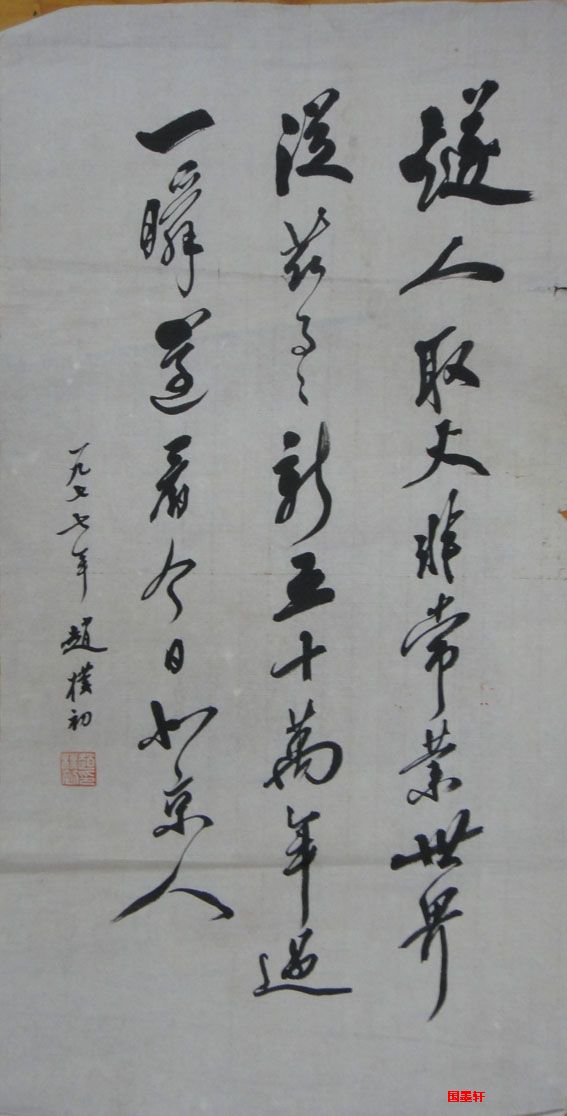 燧人取火非常業世界
從茲事〻新五十萬年過
一瞬還看今日北京人
一九七七年 趙樸初
国墨轩